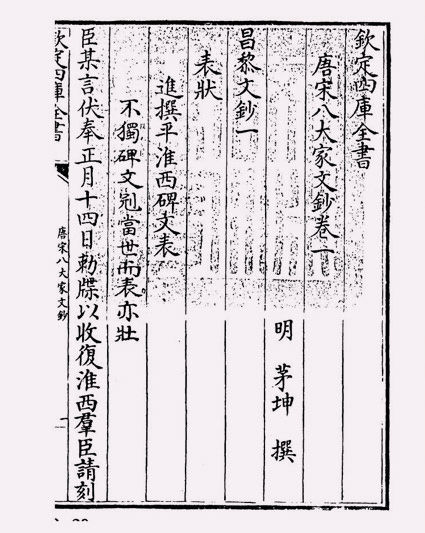 欽定四庫全書
唐宋八大家文鈔卷一
明 茅坤 撰
昌黎文鈔一
表狀
進撰平淮西碑文表
不獨碑文冠當世而表亦壯
臣某言伏奉正月十四日勅牒以收復淮西羣臣請刻
欽定四庫全書
唐宋八大家文鈔
一